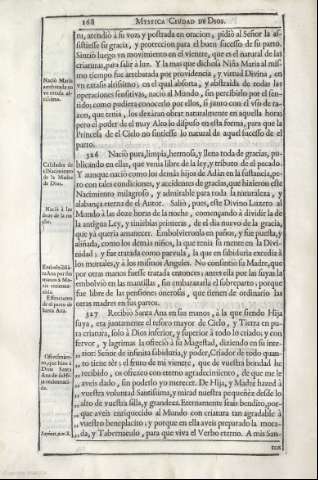 168
MYSTICA CIUDAD DE DIOS.
tu, atendiò à su voz, y postrada en oracion, pidiò al Señor la as-
sistiesse su gracia, y proteccion para el buen sucesso de su parto.
Sintiò luego vn movimiento en el vientre, que es el natural de las
criaturas, para salir à luz. Y la mas que dichosa Niña Maria al mis-
mo tiempo fue arrebatada por providencia, y virtud Divina, en
vn extasis altissimo; en el qual absorta, y abstraida de todas las
operaciones sensitivas, naciò al Mundo, sin percibirlo por el sen-
tido; como pudiera conocerlo por ellos, si junto con el vso de ra-
zon, que tenia, los dexàran obrar naturalmente en aquella hora:
pero el poder de el muy Alto lo dispuso en esta forma, para que la
Princesa de el Cielo no sintiesse lo natural de aquel sucesso de el
parto.
326 Naciò pura, limpia, hermosa, y llena toda de gracias, pu-
blicando en ellas, que venia libre de la ley, y tributo de el pecado.
Y aunque naciò como los demàs hijos de Adàn en la sustancia, pe-
ro con tales condiciones, y accidentes de gracias, que hizieron este
Nacimiento milagroso, y admirable para toda la naturaleza, y
alabança eterna de el Autor. Saliò, pues, este Divino Luzero al
Mundo à las doze horas de la noche, començando à dividir la de
la antigua Ley, y tinieblas primeras, de el dia nuevo de la gracia,
que yà queria amanecer. Embolvieronla en paños, y fue puesta, y
aliñada, como los demàs niños, la que tenia su mente en la Divi-
nidad; y fue tratada como parvula, la que en sabiduria excedia à
los mortales, y à los mismos Angeles. No consintiò su Madre, que
por otras manos fuesse tratada entonces; antes ella por las suyas la
embolviò en las mantillas, sin embaraçarla el sobreparto; porque
fue libre de las pensiones onerosas, que tienen de ordinario las
otras madres en sus partos.
327 Recibiò Santa Ana en sus manos, à la que siendo Hija
suya, era juntamente el tesoro mayor de Cielo, y Tierra en pu-
ra criatura, solo à Dios inferior, y superior à todo lo criado; y con
fervor, y lagrimas la ofreciò à su Magestad, diziendo en su inte-
rior: Señor de infinita sabiduria, y poder, Criador de todo quan-
to tiene sèr; el fruto de mi vientre, que de vuestra bondad he
recibido, os ofrezco con eterno agradecimiento, de que me le
aveis dado, sin poderlo yo merecer. De Hija, y Madre hazed à
vuestra voluntad Santissima, y mirad nuestra pequeñez desde lo
alto de vuestra silla, y grandeza. Eternamente seais bendito, por-
que aveis enriquecido al Mundo con criatura tan agradable à
vuestro beneplacito; y porque en ella aveis preparado la mora-
da, y Tabernaculo, para que viva el Verbo eterno. A mis San-
Naciò Maria
arrebatada en
vn extasis al-
tissimo.
de la Madre
de Dios.
Naciò à las
doze de la no-
che.
Santa Ana.